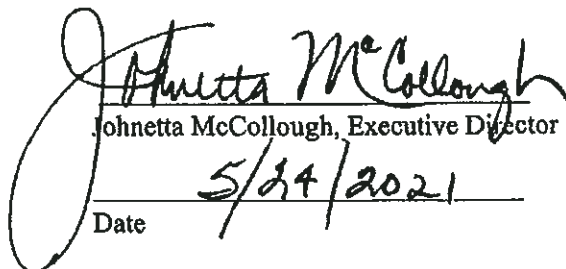 Johnetta McCollough
Johnetta McCollough, Executive Director
5/24/2021
Date